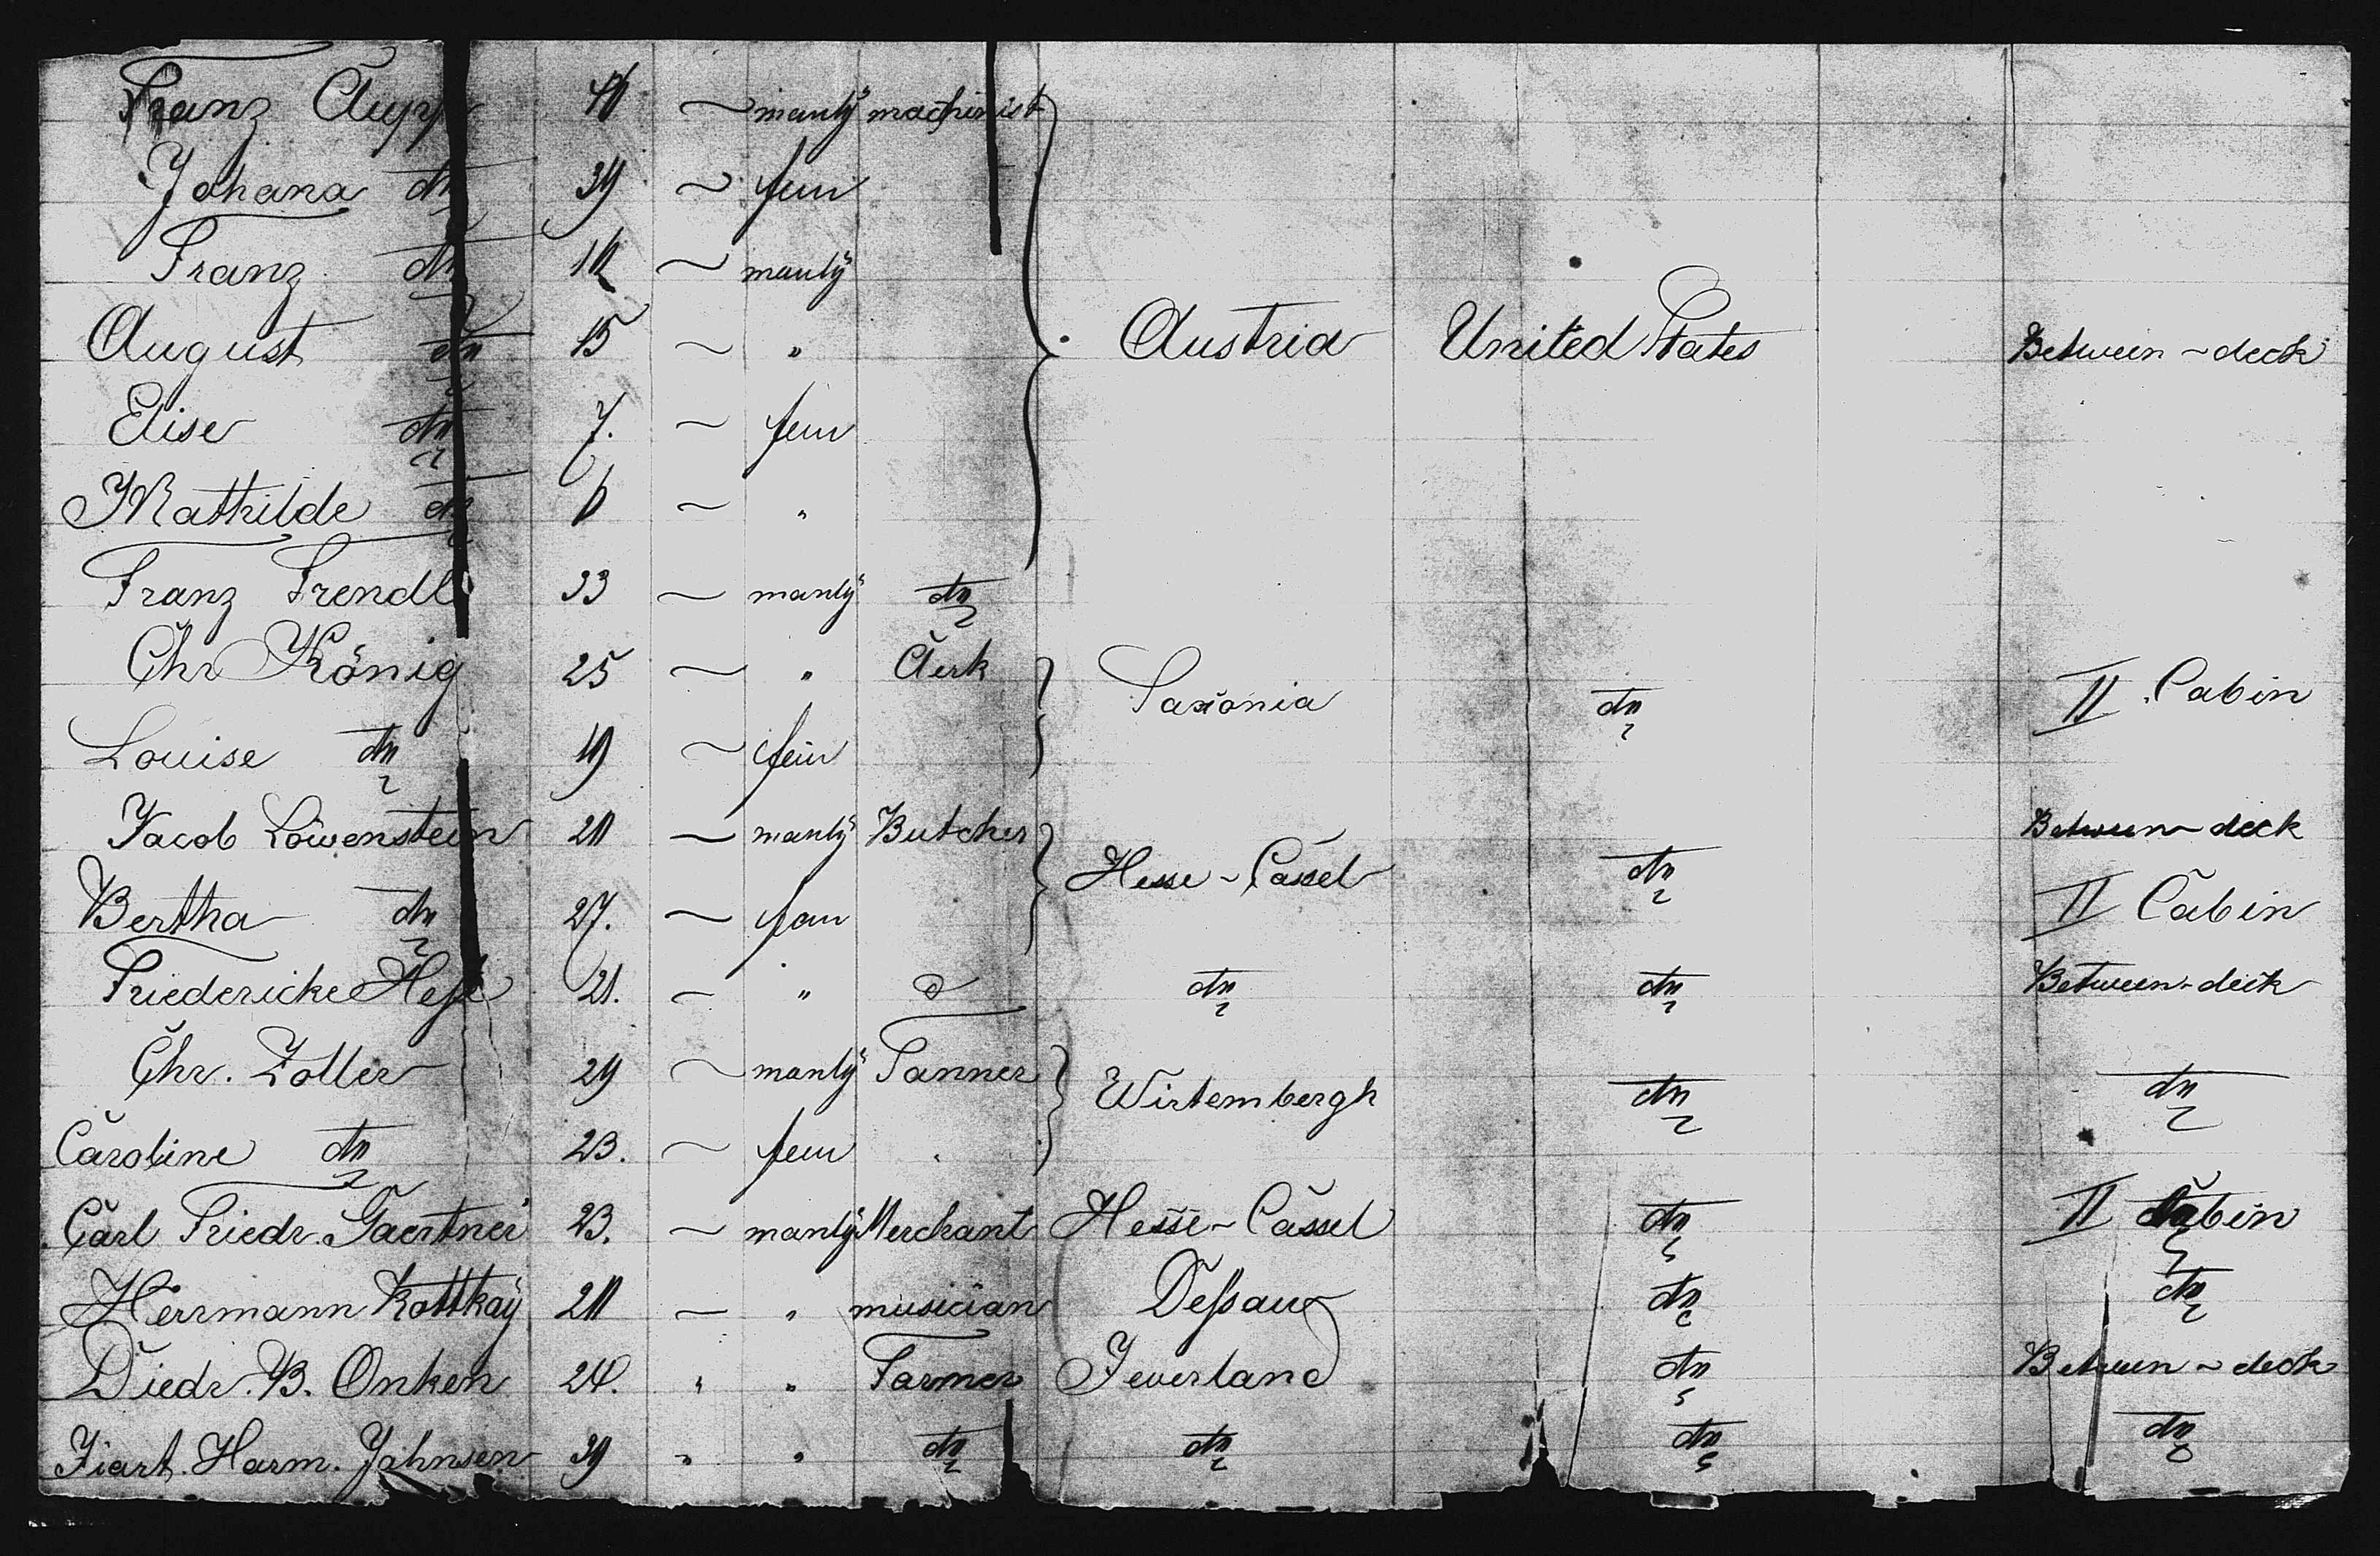 Franz Aupp 40 ~ manly machinist
Johana do 39 ~ fem
Franz do ~ manly
August do 15 ~ " Austria United States Between-deck
Elise do 7. ~ fem
Mathilde do 6 ~ "
Franz Trendl 33 ~ manly do
Chr König 25 ~ " Clerk Saxonia do II Cabin
Louise do 19 ~ fem
Jacob Löwenstein 20 ~ manly Butcher Between-deck
Hesse-Cassel do
Bertha do 27. ~ fem II Cabin
Friedericke 21. ~ " do do Between-deck
Chr. Zoller 29 ~ manly Tanner Wirtembergh do do
Caroline do 23. ~ fem
Carl Friedr. Gaertner 23. ~ manly Merchant Hesse-Cassel do II Cabin
Herrmann Kottkaÿ 20 ~ " musician Deßau do do
Diedr. B. Onken 24. " " Farmer Jeverland do Between-deck
Harm. Jahnsen 39 " " do do do do